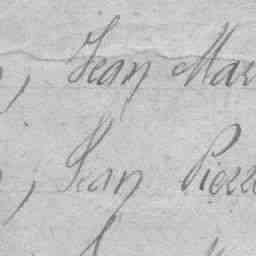 , Jean Mar
, Jean Pierre